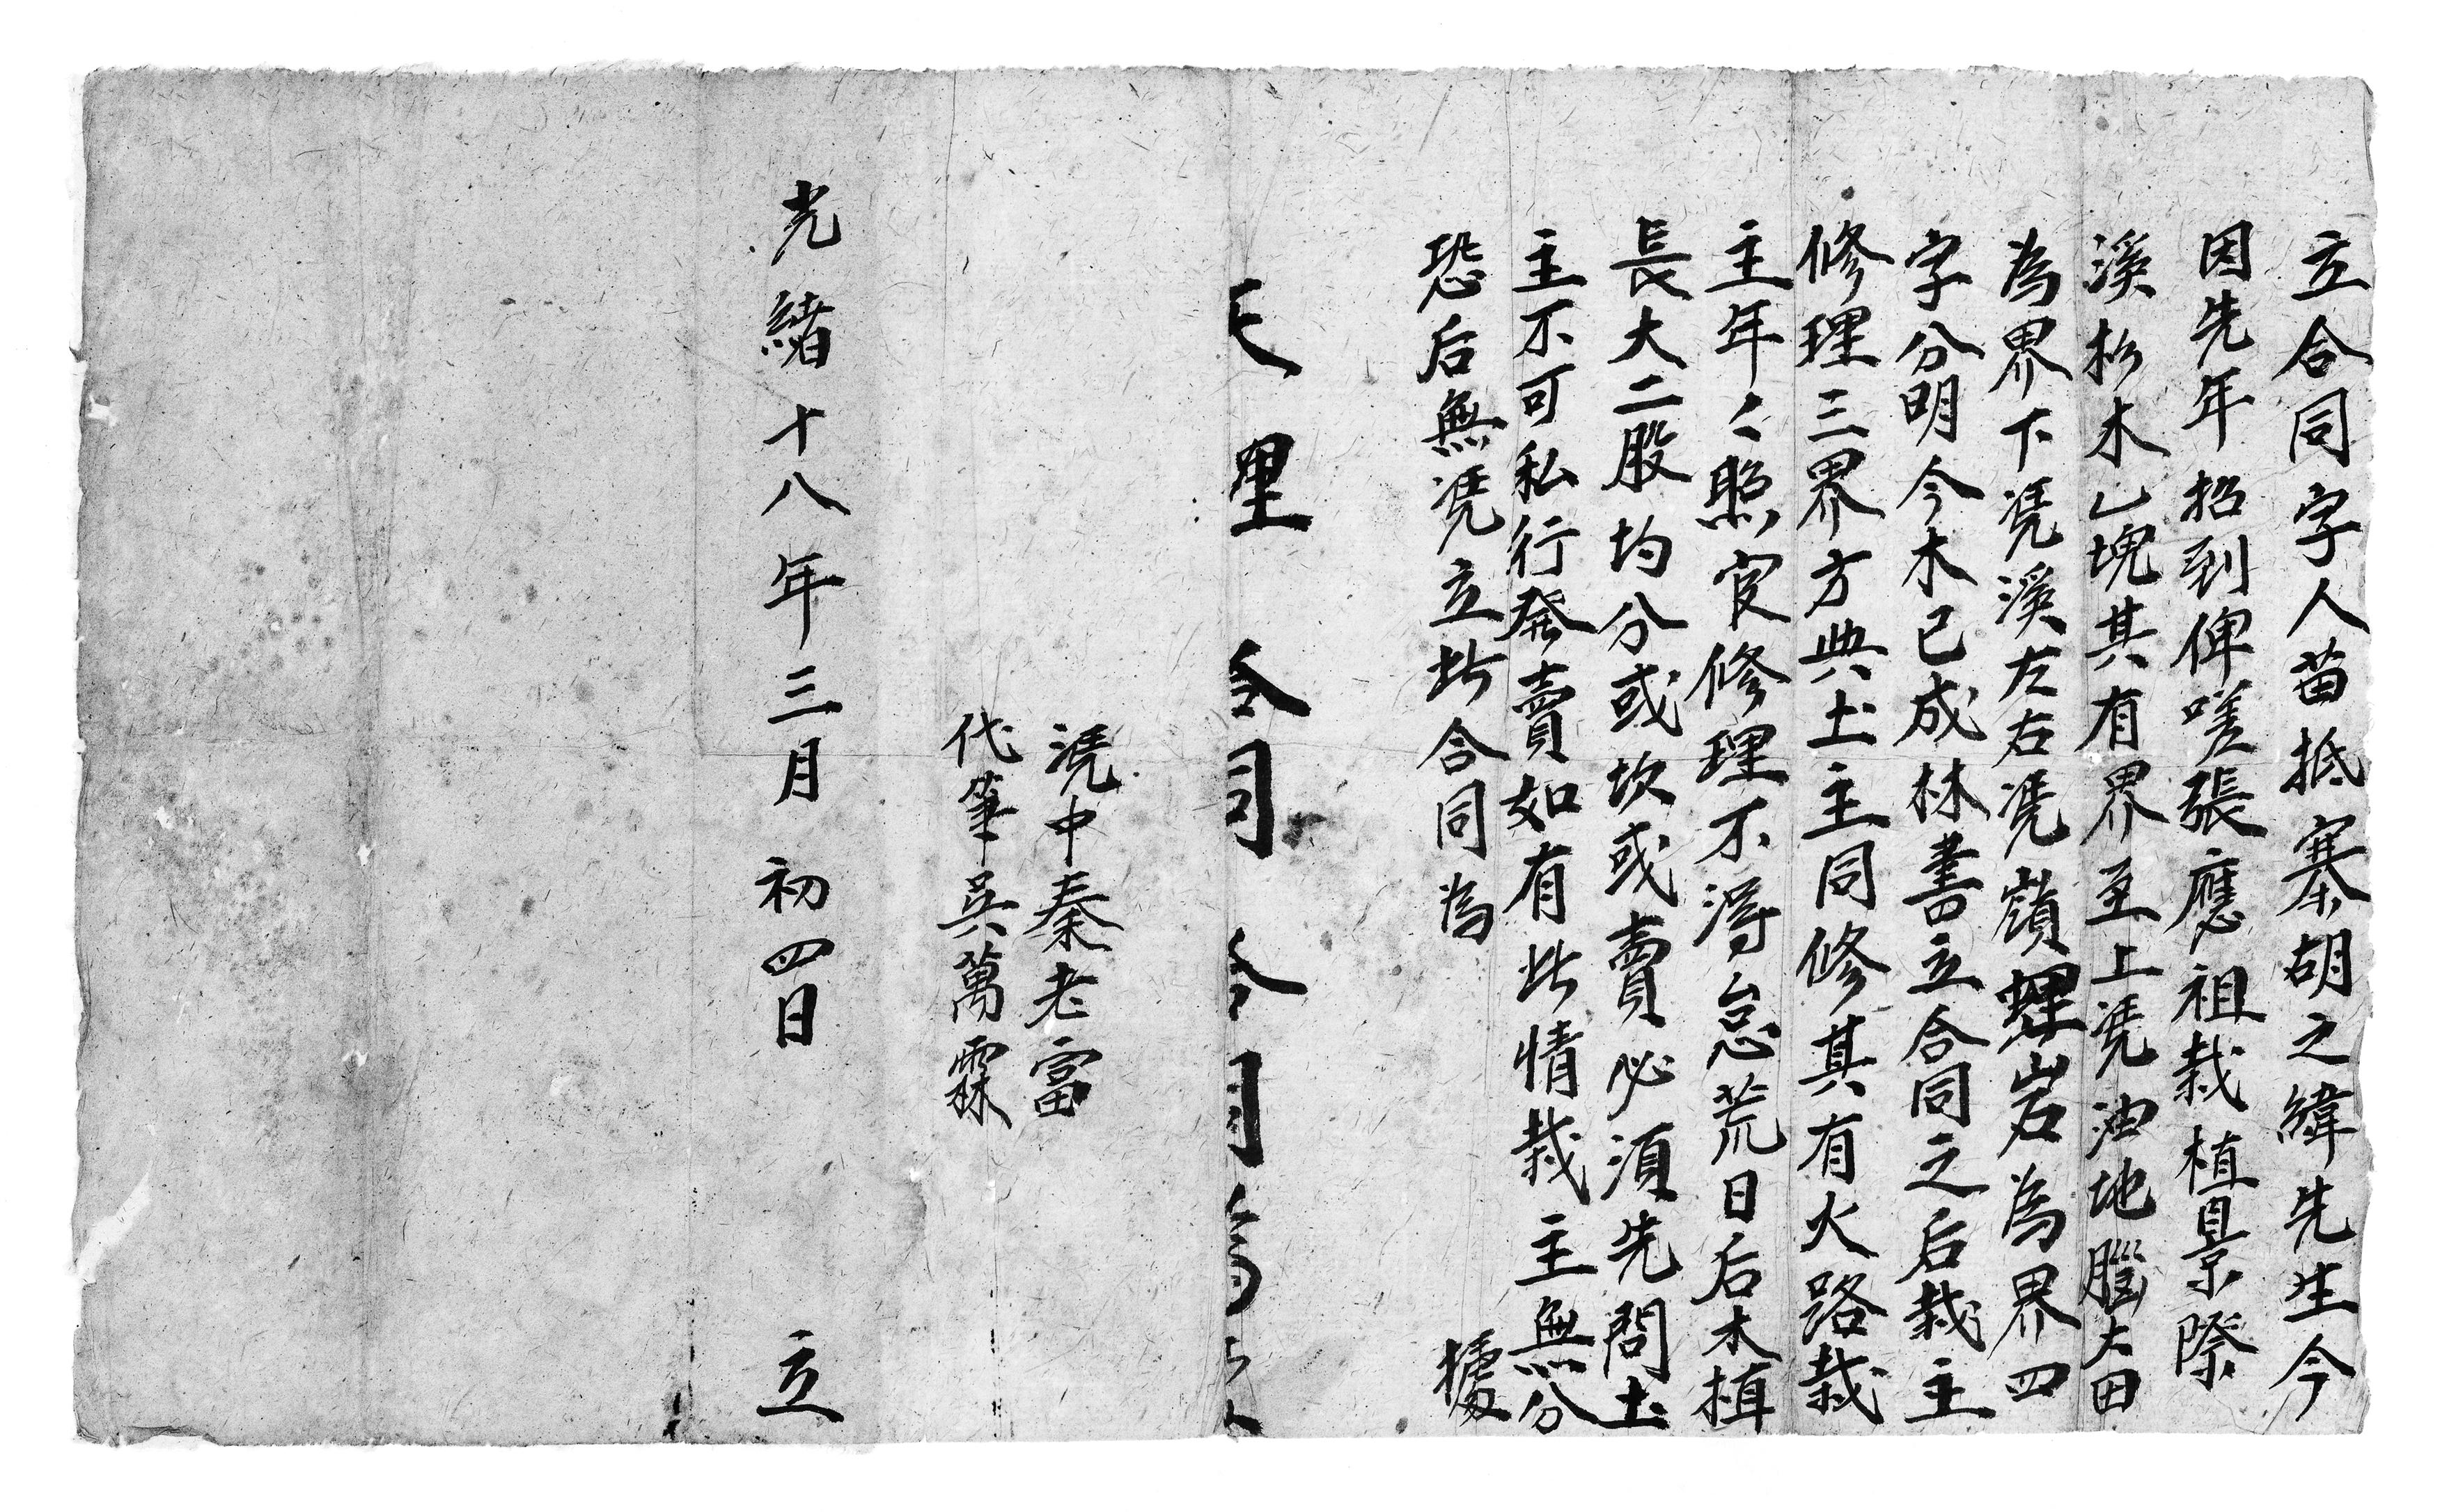 立合同字人苗抵寨胡之緯先生今
因先年招到俾嗟張應祖栽植景際
溪杉木乙塊其有界至上凴油地腦大田
為界下凴溪左右凴嶺螺岩為界四
字分明今木已成林書立合同之后栽主
修理三界方與土主同修其有火路栽
主年々照官修理不得怠荒日后木植
長大二股均分或坎或賣必須先問土
主不可私行發賣如有此情栽主無分
恐后無凴立此合同為
據
天理 合同 合同為
凴中秦老富
代筆吳萬霖
光緒十八年三月初四日 立